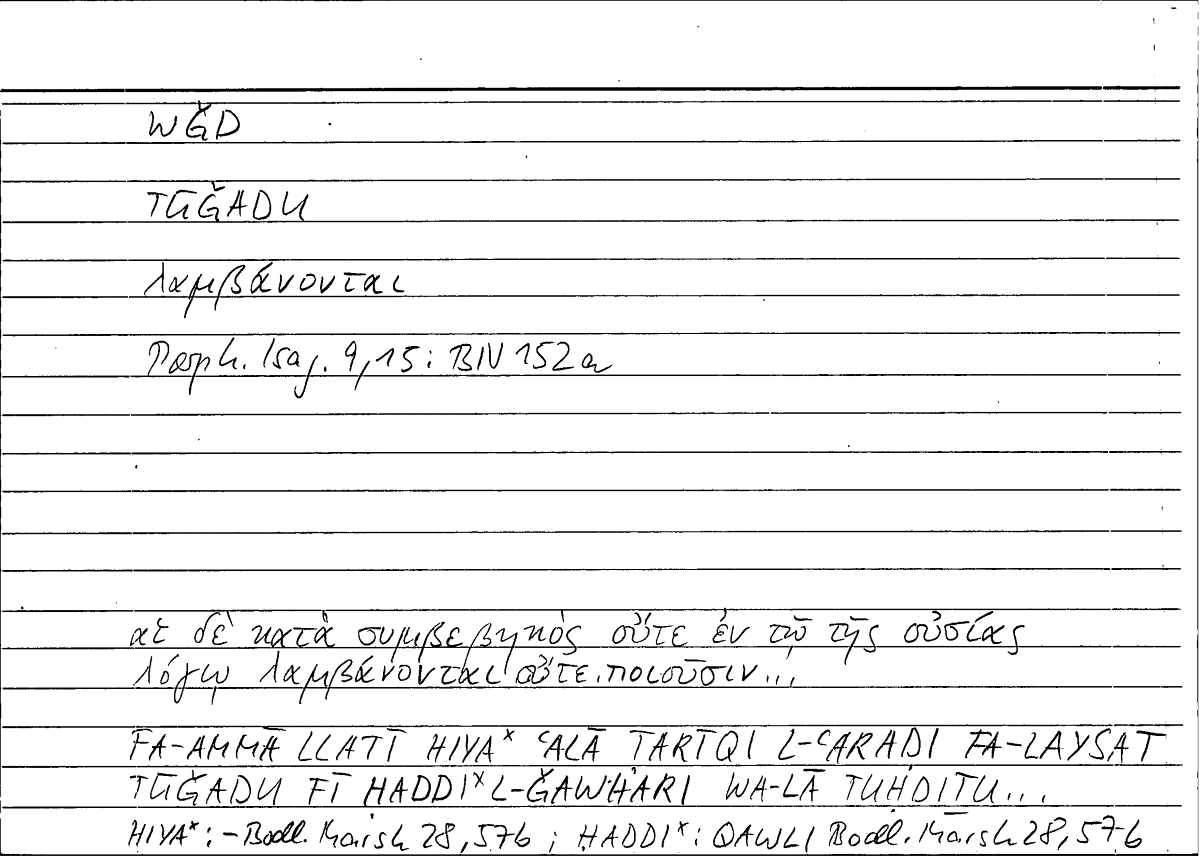 WǦD
TŪǦADU
λαμβάνονται
Porph. Isag. 9,15: BIV 152a
αἱ δὲ κατὰ συμβεβηκὸς οὔτε ἐν τῷ τῆς οὐσίας
λόγῳ λαμβάνονται οὔτε ποιοῦσιν...
FA-AMMĀ LLATĪ HIYAˣ ʿALĀ TARĪQI L-ʿARADI FA-LAYSAT
TŪǦADU FĪ HADDIˣ L-ǦAWHARI WA-LĀ TUHDITU...
HIYAˣ: – Bodl. Marsh 28,57b ; HADDIˣ: QAWLI Bodl. Marsh 28,57b